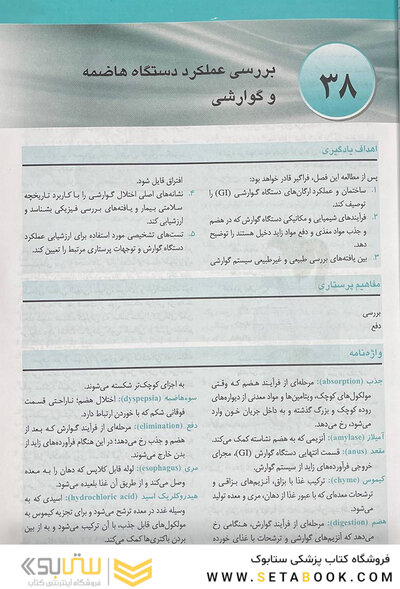 بررسی عملکرد دستگاه هاضمه
و گوارشی
۳۸
اهداف یادگیری
پس از مطالعه این فصل، فراگیر قادر خواهد بود:
۱. ساختمان و عملکرد ارگان‌های دستگاه گوارشی (GI) را
توصیف کند.
۲. فرآیندهای شیمیایی و مکانیکی دستگاه گوارش که در هضم
و جذب مواد مغذی و دفع مواد زاید دخیل هستند را توضیح
دهد.
۳. بین یافته‌های بررسی طبیعی و غیرطبیعی سیستم گوارشی
افتراق قایل شود.
۴. نشانه‌های اصلی اختلال گوارشی را با کاربرد تاریخچه
سلامتی بیمار و یافته‌های بررسی فیزیکی بشناسد و
ارزشیابی کند.
۵. تست‌های تشخیصی مورد استفاده برای ارزشیابی عملکرد
دستگاه گوارش و توجهات پرستاری مرتبط را تعیین کند.
مفاهیم پرستاری
بررسی
دفع
واژه‌نامه
جذب (absorption): مرحله‌ای از فرآیند هضم که وقتی
مولکول‌های کوچک، ویتامین‌ها و مواد معدنی از دیواره‌های
روده کوچک و بزرگ گذشته و به داخل جریان خون وارد
می‌شود، رخ می‌دهد.
آمیلاز (amylase): آنزیمی که به هضم نشاسته کمک می‌کند.
مقعد (anus): قسمت انتهایی دستگاه گوارش (GI)، مجرای
خروجی فرآورده‌های زاید از سیستم گوارش.
کیموس (chyme): ترکیب غذا با بزاق، آنزیم‌های بزاقی و
ترشحات معده‌ای که با عبور غذا از دهان، مری و معده تولید
می‌شود.
هضم (digestion): مرحله‌ای از فرآیند گوارش، هنگامی رخ
می‌دهد که آنزیم‌های گوارشی و ترشحات با غذای خورده
به اجزای کوچک‌تر شکسته می‌شوند.
سوءهاضمه (dyspepsia): اختلال هضم؛ ناراحتی قسمت
فوقانی شکم که با خوردن ارتباط دارد.
دفع (elimination): مرحله‌ای از فرآیند گوارش که بعد از
هضم و جذب رخ می‌دهد؛ در این هنگام فرآورده‌های زاید از
بدن خارج می‌شوند.
مری (esophagus): لوله قابل کلاپس که دهان را به معده
وصل می‌کند و از طریق آن غذا بلعیده می‌شود.
هیدروکلریک اسید (hydrochloric acid): اسیدی که به
وسیله غدد در معده ترشح می‌شود و برای تجزیه کیموس به
مولکول‌های قابل جذب، با آن ترکیب می‌شود و به از بین
بردن باکتری‌ها کمک می‌کند.
ستابوک
فروشگاه اینترنتی کتاب
فروشگاه کتاب پزشکی ستابوک
WWW.SETABOOK.COM